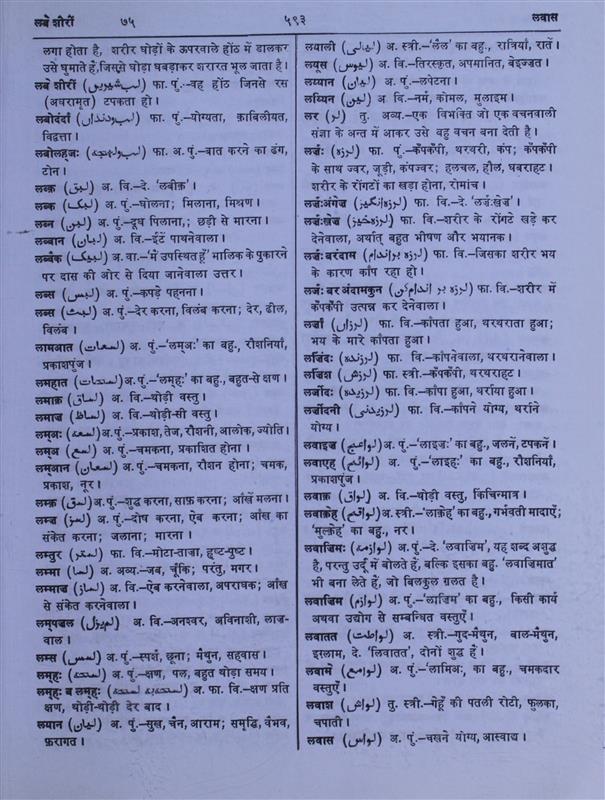 लबे शीरीं ७५ ५९३ लवास
लगा होता है, शरीर घोड़ों के ऊपरवाले होंठ में डालकर
उसे घुमाते हैं, जिससे घोड़ा घबड़ाकर शरारत भूल जाता है।
लबे शीरीं (لب شیریں) फा. पुं.–वह होंठ जिनसे रस
(अधरामृत) टपकता हो।
लबोदंदाँ (لب و دنداں) फा. पुं.–योग्यता, क़ाबिलीयत,
विद्वत्ता।
लबोलहजः (لب و لہجہ) फा. अ. पुं.–बात करने का ढंग,
टोन।
लब्क़ (لبق) अ. वि.–दे. 'लबीक़'।
लब्क (لبک) अ. पुं.–घोलना; मिलाना, मिश्रण।
लब्न (لبن) अ. पुं.–दूध पिलाना,; छड़ी से मारना।
लब्बान (لبان) अ. वि.–ईंटें पाथनेवाला।
लब्बैक (لبیک) अ. वा.–'मैं उपस्थित हूँ' मालिक के पुकारने
पर दास की ओर से दिया जानेवाला उत्तर।
लब्स (لبس) अ. पुं.–कपड़े पहनना।
लब्स (لبث) अ. पुं.–देर करना, विलंब करना; देर, ढील,
विलंब।
लामआत (لمعات) अ. पुं.–'लमअः' का बहु., रौशनियाँ,
प्रकाशपुंज।
लमहात (لمحات) अ. पुं.–'लमहः' का बहु., बहुत-से क्षण।
लमाक़ (لماق) अ. वि.–थोड़ी वस्तु।
लमाज (لماظ) अ. वि.–थोड़ी-सी वस्तु।
लमअः (لمعہ) अ. पुं.–प्रकाश, तेज, रौशनी, आलोक, ज्योति।
लमअ (لمع) अ. पुं.–चमकना, प्रकाशित होना।
लमआन (لمعان) अ. पुं.–चमकना, रौशन होना; चमक,
प्रकाश, नूर।
लम्क़ (لمق) अ. पुं.–शुद्ध करना, साफ़ करना; आँखें मलना।
लम्ज़ (لمز) अ. पुं.–दोष करना, ऐब करना; आँख का
संकेत करना; जलाना; मारना।
लम्तुर (لمتر) फा. वि.–मोटा-ताज़ा, हृष्ट-पुष्ट।
लम्मा (لما) अ. अव्य.–जब, चूँकि; परंतु, मगर।
लम्माज़ (لماز) अ. वि.–ऐब करनेवाला, अपराधक; आँख
से संकेत करनेवाला।
लमयज़ल (لم یزل) अ. वि.–अनश्वर, अविनाशी, लाज़-
वाल।
लम्स (لمس) अ. पुं.–स्पर्श, छूना; मैथुन, सहवास।
लमहः (لمحہ) अ. पुं.–क्षण, पल, बहुत थोड़ा समय।
लमहः ब लमहः (لمحہ بہ لمحہ) अ. फा. वि.–क्षण प्रति
क्षण, थोड़ी-थोड़ी देर बाद।
लयान (لیان) अ. पुं.–सुख, चैन, आराम; समृद्धि, वैभव,
फ़रागत।
लयाली (لیالی) अ. स्त्री.–'लैल' का बहु., रात्रियाँ, रातें।
लयूस (لیوس) अ. वि.–तिरस्कृत, अपमानित, बेइज्ज़त।
लय्यान (لیان) अ. पुं.–लपेटना।
लय्यिन (لین) अ. वि.–नर्म, कोमल, मुलाइम।
लर (لر) तु. अव्य.–एक विभक्ति जो एक वचनवाली
संज्ञा के अन्त में आकर उसे बहु वचन बना देती है।
लर्ज़ः (لرزہ) फा. पुं.–कँपकँपी, थरथरी, कंप; कँपकँपी
के साथ ज्वर, जूड़ी, कंपज्वर; हलचल, हौल, घबराहट।
शरीर के रोंगटों का खड़ा होना, रोमांच।
लर्ज़ःअंगेज़ (لرزہ انگیز) फा. वि.–दे. 'लर्ज़ःखेज़'।
लर्ज़ःखेज़ (لرزہ خیز) फा. वि.–शरीर के रोंगटे खड़े कर
देनेवाला, अर्थात् बहुत भीषण और भयानक।
लर्ज़ः बरंदाम (لرزہ بر اندام) फा. वि.–जिसका शरीर भय
के कारण काँप रहा हो।
लर्ज़ः बर अंदामकुन (لرزہ بر اندام کن) फा. वि.–शरीर में
कँपकँपी उत्पन्न कर देनेवाला।
लर्ज़ां (لرزاں) फा. वि.–काँपता हुआ, थरथराता हुआ;
भय के मारे काँपता हुआ।
लर्ज़िदः (لرزندہ) फा. वि.–काँपनेवाला, थरथरानेवाला।
लर्ज़िश (لرزش) फा. स्त्री.–कँपकँपी, थरथराहट।
लर्ज़ीदः (لرزیدہ) फा. वि.–काँपा हुआ, थर्राया हुआ।
लर्ज़ीदनी (لرزیدنی) फा. वि.–काँपने योग्य, थर्राने
योग्य।
लवाइज (لواعج) अ. पुं.–'लाइजः' का बहु., जलनें, टपकनें।
लवाएह (لوائح) अ. पुं.–'लाइहः' का बहु., रौशनियाँ,
प्रकाशपुंज।
लवाक़ (لواق) अ. वि.–थोड़ी वस्तु, किंचिन्मात्र।
लवाक़ेह (لواقح) अ. स्त्री.–'लाक़ेह' का बहु., गर्भवती मादाएँ;
'मुल्क़ेह' का बहु., नर।
लवाज़िमः (لوازمہ) अ. पुं.–दे. 'लवाज़िम', यह शब्द अशुद्ध
है, परन्तु उर्दू में बोलते हैं, बल्कि इसका बहु. 'लवाज़िमात'
भी बना लेते हैं, जो बिलकुल ग़लत है।
लवाज़िम (لوازم) अ. पुं.–'लाज़िम' का बहु., किसी कार्य
अथवा उद्योग से सम्बन्धित वस्तुएँ।
लवातत (لواطت) अ. स्त्री.–गुद-मैथुन, बाल-मैथुन,
इस़लाम, दे. 'लिवातत', दोनों शुद्ध हैं।
लवामे (لوامع) अ. पुं.–'लामिअः' का बहु., चमकदार
वस्तुएँ।
लवाश (لواش) तु. स्त्री.–गेहूँ की पतली रोटी, फुलका,
चपाती।
लवास (لواس) अ. पुं.–चखने योग्य, आस्वाद्य।